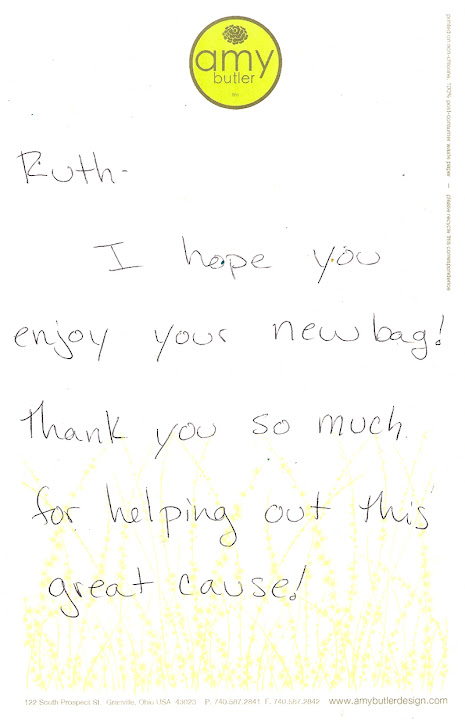 amy
butler
Ruth-
I hope you
enjoy your new bag!
Thank you so much
for helping out this
great cause!
122 South Prospect St. Granville, Ohio USA 43023 P. 740.587.2841 F. 740.587.2842 www.amybutlerdesign.com
printed on non-chlorine, 100% post-consumer waste paper — please recycle this correspondence